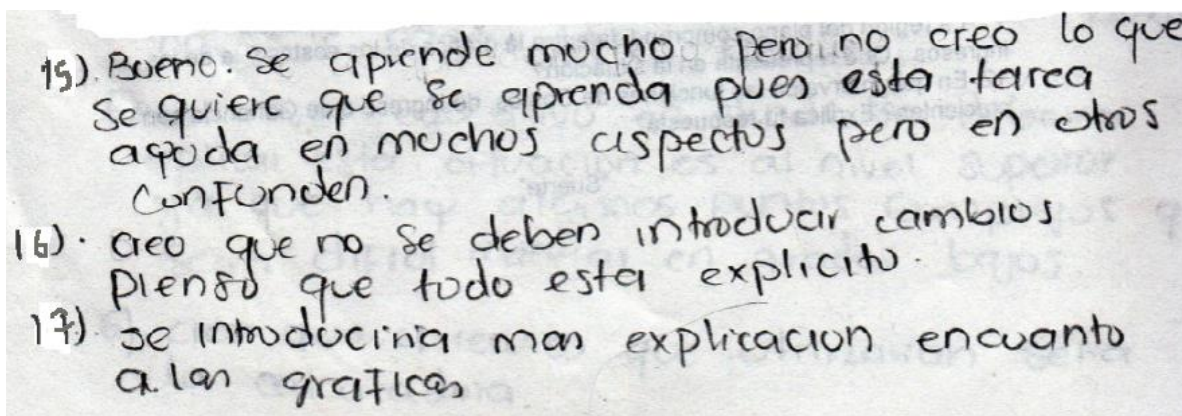 15). Bueno. se aprende mucho, pero no creo lo que
se quiere que se aprenda pues esta tarea
aquda en muchos aspectos pero en otros
confunden.
16). creo que no se deben introducir cambios
pienso que todo esta explicito.
17) se introduciria mas explicacion encuanto
a las graficas